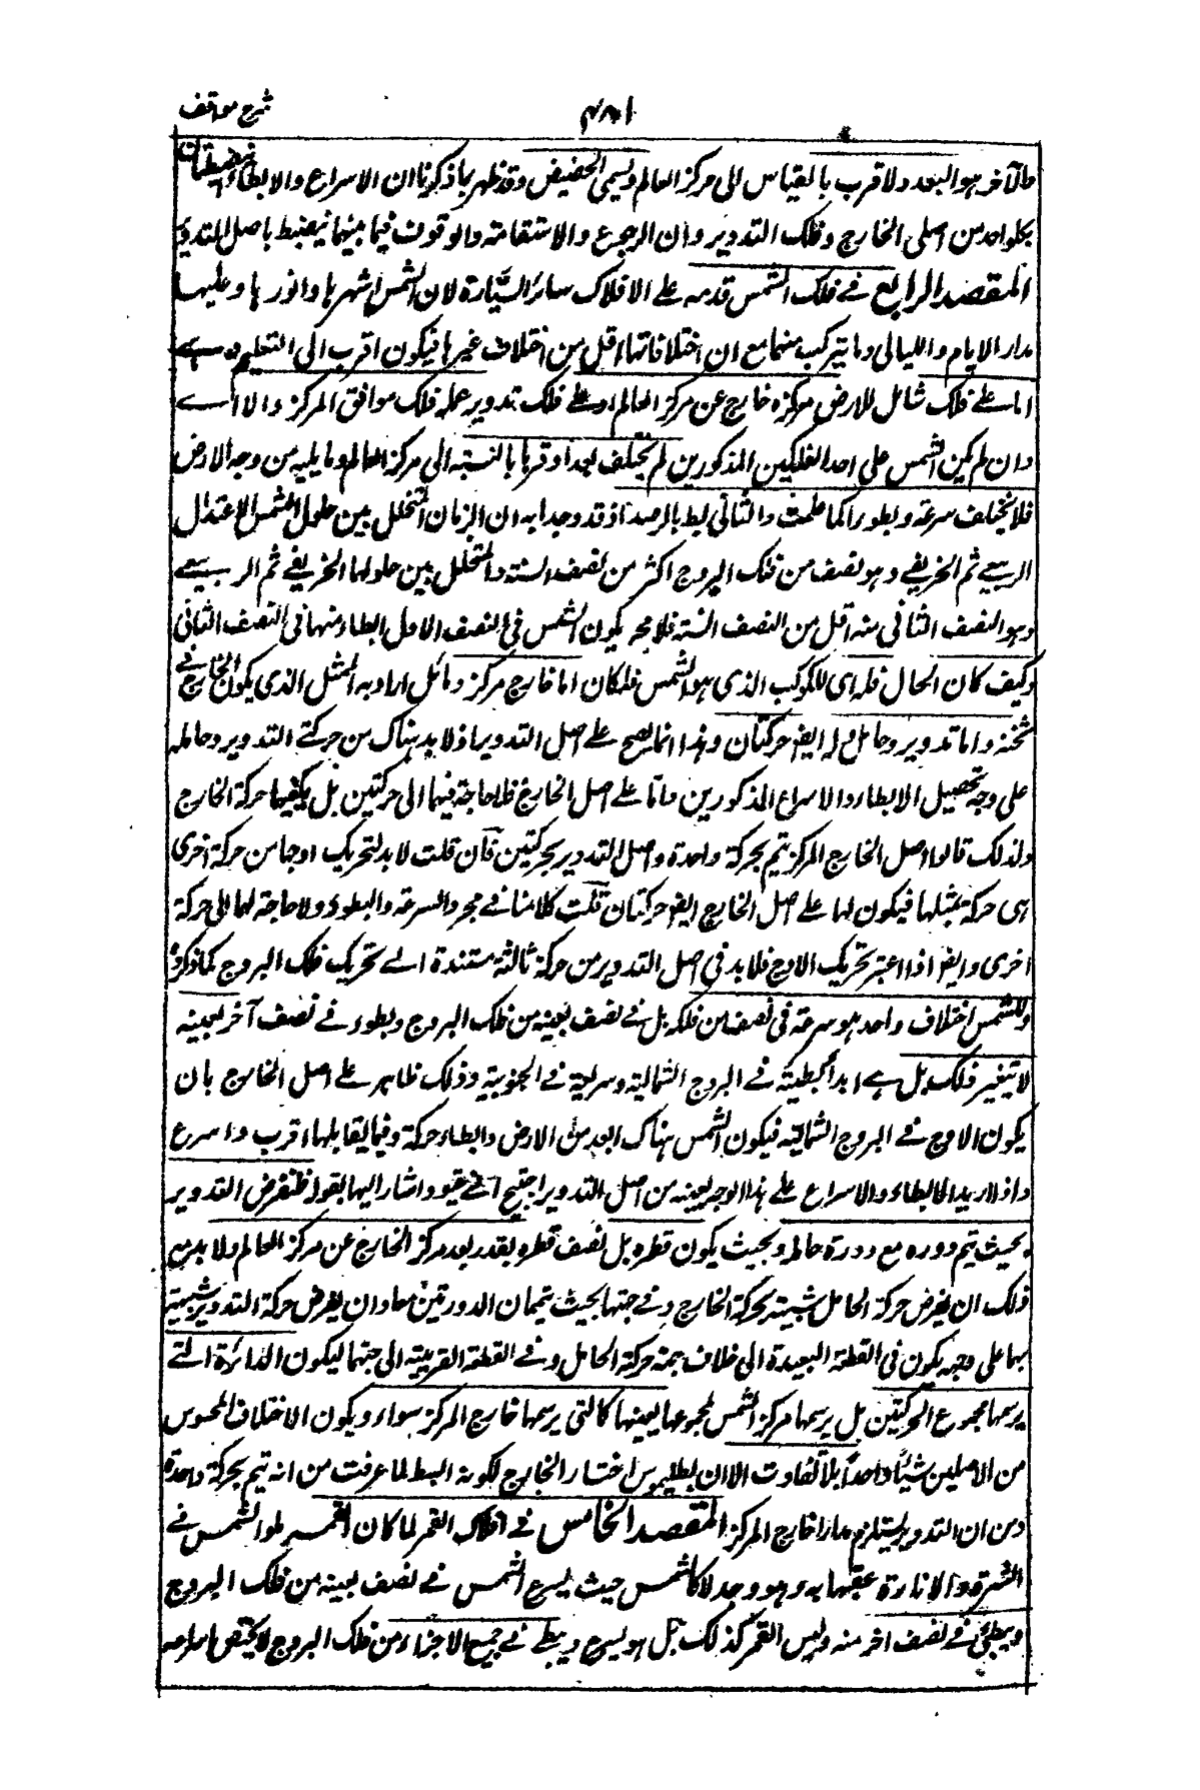 شرح مواقف
۴۸۱
والآخر هو البعد ولاقرب بالقياس الى مركز العالم ويسمى الحضيض وقد ظهر بما ذكرنا ان الاسراع والابطاء ينضبطان
بكلواحد من اصلى الخارج وفلك التدوير وان الرجوع والاستقامة والوقوف فيما بينهما ينضبط باصل التدوير
المقصد الرابع فى فلك الشمس قدمه على الافلاك سائر السَّيَّارة لان الشمس اشهرها وانورها وعليها
مدار الايام والليالى وما يتركب منهما مع ان اختلافاتها اقل من اختلاف غيرها فيكون اقرب الى التعليم وهى
اما على فلك شامل للارض مركزه خارج عن مركز العالم او على فلك تدوير يحمله فلك موافق المركز والا اى
وان لم يكن الشمس على احد الفلكين المذكورين لم يختلف بعدا وقربا بالنسبة الى مركز العالم وما يليه من وجه الارض
فلا يختلف سرعة وبطوءا كما علمت والتالى بط بالرصد اذ قد وجد به ان الزمان المتخلل بين حلول الشمس الاعتدال
الربيعى ثم الخريفى وهو نصف من فلك البروج اكثر من نصف السنة والمتخلل بين حلولها الخريفى ثم الربيعى
وهو النصف الثانى منه اقل من النصف السنة فلا جرم يكون الشمس فى النصف الاول ابطاء منها فى النصف الثانى
وكيف كان الحال فله اى للكوكب الذى هو الشمس فلكان اما خارج مركز ومائل اراد به الممثل الذى يكون الخارج فى
ثخنه واما تدوير وحامل وله ايضا حركتان وهذا انما يصح على اصل التدوير اذ لا بد هناك من حركتى التدوير وحامله
على وجه تحصيل الابطاء والاسراع المذكورين واما على اصل الخارج فلا حاجة فيهما الى حركتين بل يكفيها حركة الخارج
ولذلك قالوا اصل الخارج المركز يتم بحركة واحدة واصل التدوير بحركتين فان قلت لا بد لتحريك اوجها من حركة اخرى
هى حركة ممثلها فيكون لها على اصل الخارج ايضا حركتان قلت كلامنا فى مجرد السرعة والبطوء ولا حاجة لهما الى حركة
اخرى وايضا اذا اعتبر تحريك الاوج فلا بد فى اصل التدوير من حركة ثالثة مستندة الى تحريك فلك البروج كما ذكره
وللشمس اختلاف واحد هو سرعة فى نصف من فلكه بل فى نصف بعينه من فلك البروج وبطوء فى نصف آخر بعينه
لا يتغير ذلك بل هى ابدا بطيئة فى البروج الشمالية وسريعة فى الجنوبية وذلك ظاهر على اصل الخارج بان
يكون الاوج فى البروج الشمالية فيكون الشمس هناك ابعد من الارض وابطاء حركة وفيما يقابلها اقرب واسرع
واذا اريد الابطاء والاسراع على هذا الوجه بعينه من اصل التدوير احتيج الى قيود اشار اليها بقوله فنفرض التدوير
بحيث يتم دوره مع دورة حامله وبحيث يكون قطره بل نصف قطره بقدر بعد مركز الخارج عن مركز العالم ولا بد مع
ذلك ان يفرض حركة الحامل شبيهة بحركة الخارج وفى جهتها بحيث يتممان الدورتين معا وان يفرض حركة التدوير شبيهة
بها على وجه يكون فى القطعة البعيدة الى خلاف جهة حركة الحامل وفى القطعة القريبة الى جهتها ليكون الدائرة التى
يرسمها مجموع الحركتين بل يرسمها مركز الشمس بمجموعها بعينها كالتى يرسمها خارج المركز سواء ويكون الاختلاف المحسوس
من الاصلين شيئًا واحدًا بلا تفاوت الا ان بطليموس اختار الخارج لكونه ابسط لما عرفت من انه يتم بحركة واحدة
ومن ان التدوير يستلزم مدارا خارج المركز المقصد الخامس فى افلاك القمر لما كان القمر يتلو الشمس فى
الشرف والانارة عقبها به وهو وجد لا كالشمس حيث يسرع الشمس فى نصف بعينه من فلك البروج
ويبطئ فى نصف اخر منه وليس القمر كذلك بل هو يسرع ويبطى فى جميع الاجزاء من فلك البروج لا يختص اسراعه